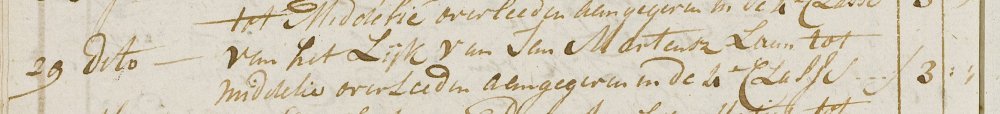 tot Middelie overleeden aangegeven in de 4e Classe 3
29 dito — van het Lijk van Jan Martensz Laan tot
middelie overleeden aangegeven in de 4e Classe - - / 3 : "